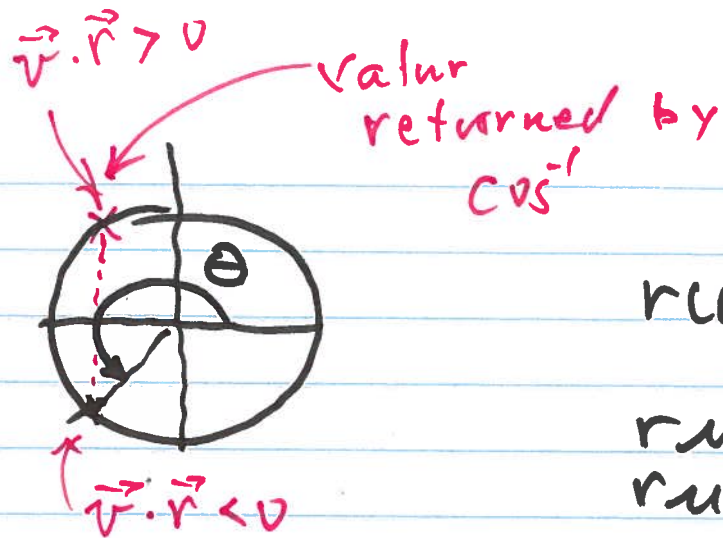 v⃗ · r⃗ > 0
valur
returned by
cos⁻¹
θ
v⃗ · r⃗ < 0